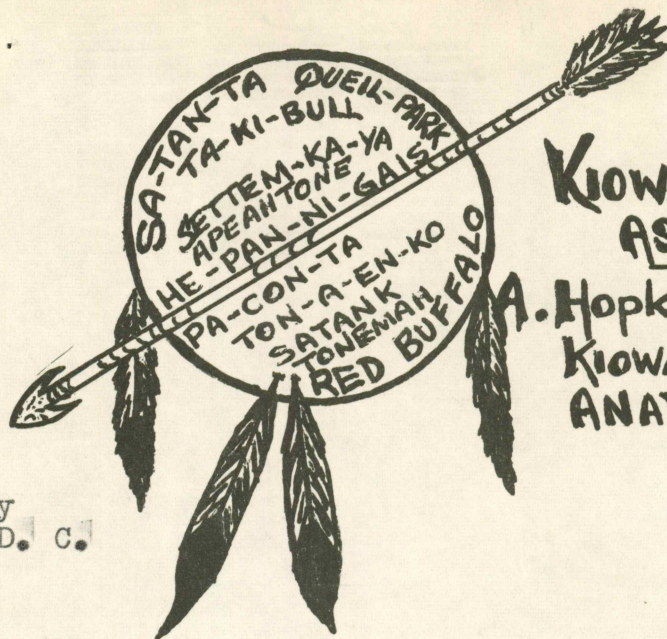 SA-TAN-TA QUEIL-PARK
TA-KI-BULL
SETTEM-KA-YA
APEAHTONE
HE-PAN-NI-GAIS
PA-CON-TA
TON-A-EN-KO
SATANK
TONEMAH
RED BUFFALO
KIOW
AS
A. Hopk
KIOWA
ANA
y
D. C.